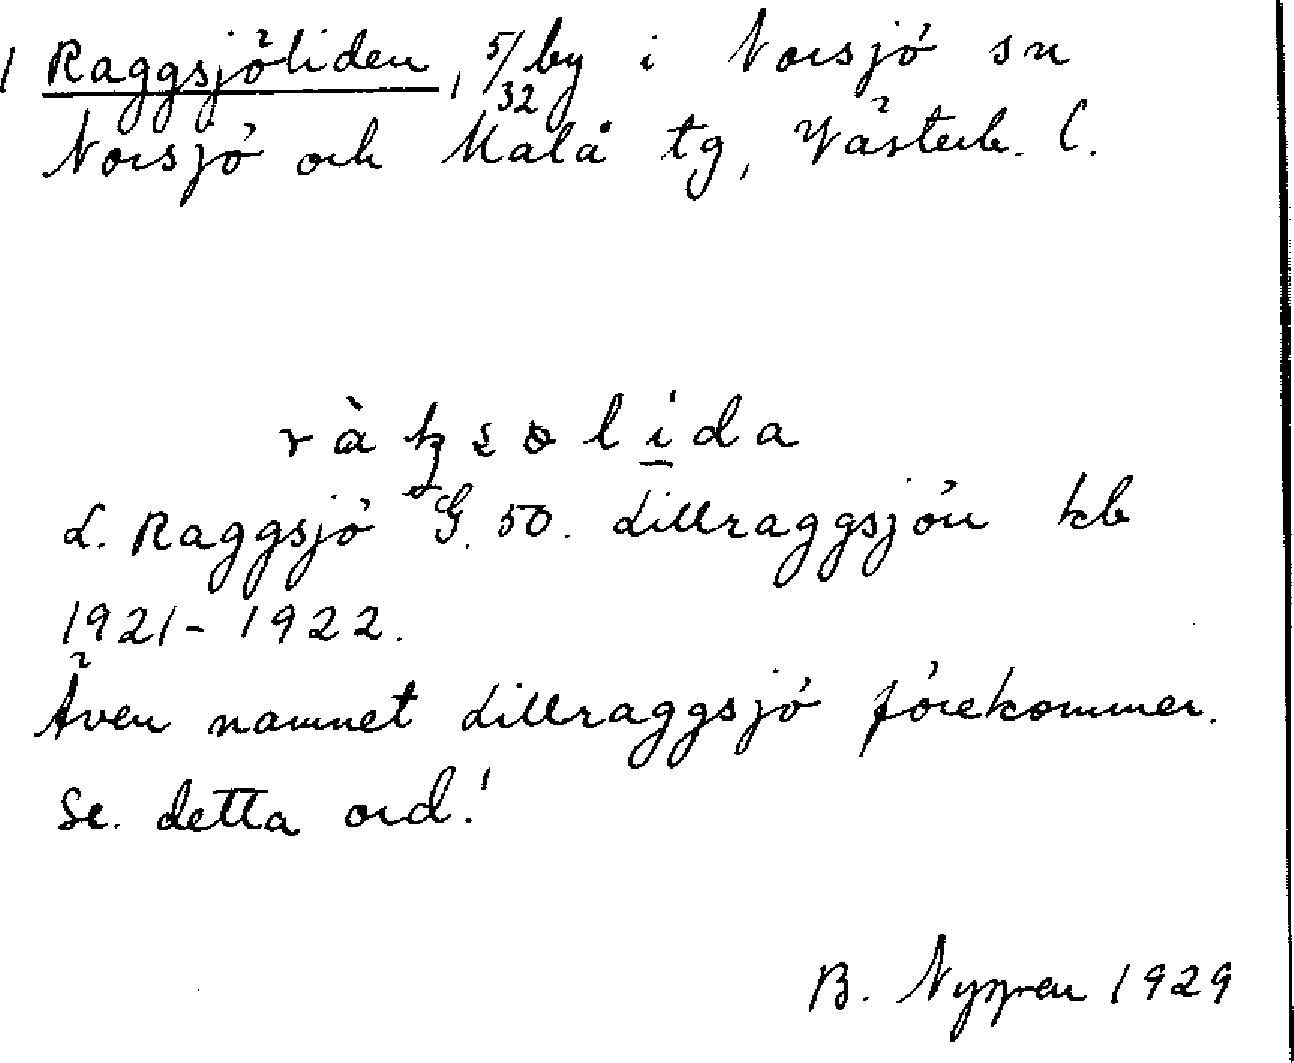 1 Raggsjöliden, 5/32 by i Norsjö sn
Norsjö och Malå tg, Västerb. l.
L. Raggsjö G. 50. Lillraggsjön kb
1921-1922.
Även namnet Lillraggsjö förekommer.
Se. detta ord!
B. Nygren 1929